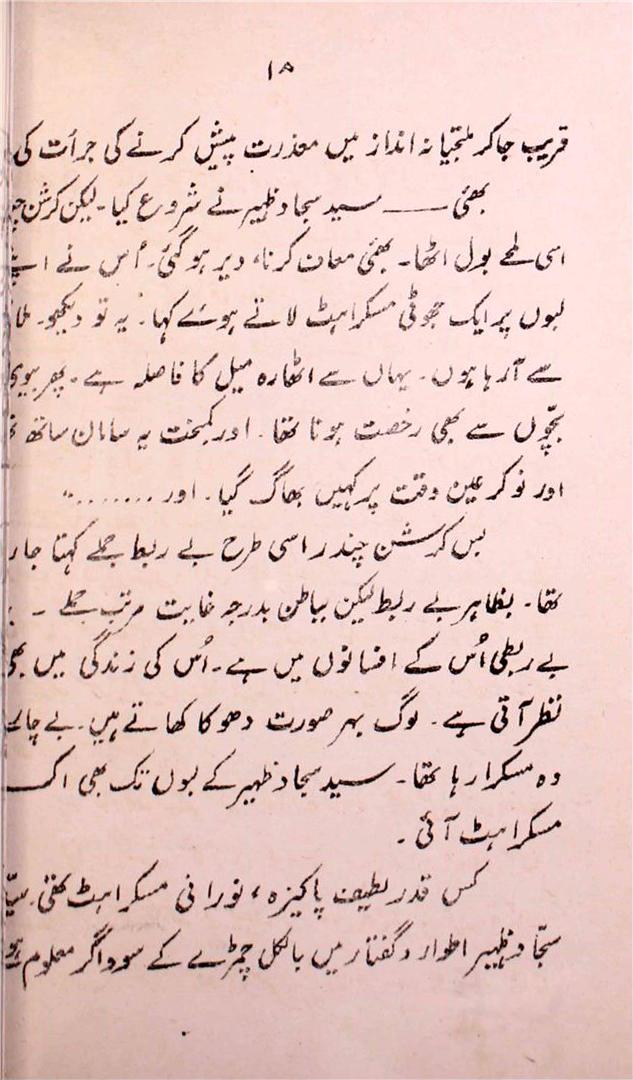 ۱۸
قریب جا کر ملتجیانہ انداز میں معذرت پیش کرنے کی جرأت کی
بھئی —— سید سجاد ظہیر نے شروع کیا۔ لیکن کرشن
اسی لمحے بول اٹھا۔ بھئی معاف کرنا، دیر ہو گئی۔ اُس نے
لبوں پر ایک جھوٹی مسکراہٹ لاتے ہوئے کہا۔ یہ تو دیکھو۔
سے آ رہا ہوں۔ یہاں سے اٹھارہ میل کا فاصلہ ہے۔ پھر بیوی
بچّوں سے بھی رخصت ہونا تھا۔ اور کمبخت یہ سامان ساتھ
اور نوکر عین وقت پر کہیں بھاگ گیا۔ اور ........"
بس کرشن چندر اسی طرح بے ربط جملے کہتا جا
تھا۔ بظاہر بے ربط لیکن بباطن بدرجہ غایت مرتب جملے ۔
بے ربطی اُس کے افسانوں میں ہے۔ اُس کی زندگی میں بھی
نظر آتی ہے۔ لوگ بہر صورت دھوکا کھاتے ہیں۔ بے چارے
وہ مسکرا رہا تھا۔ سید سجاد ظہیر کے لبوں تک بھی
مسکراہٹ آئی۔
کس قدر لطیف پاکیزہ، نورانی مسکراہٹ تھی۔
سجّاد ظہیر اطوار و گفتار میں بالکل چمڑے کے سوداگر معلوم